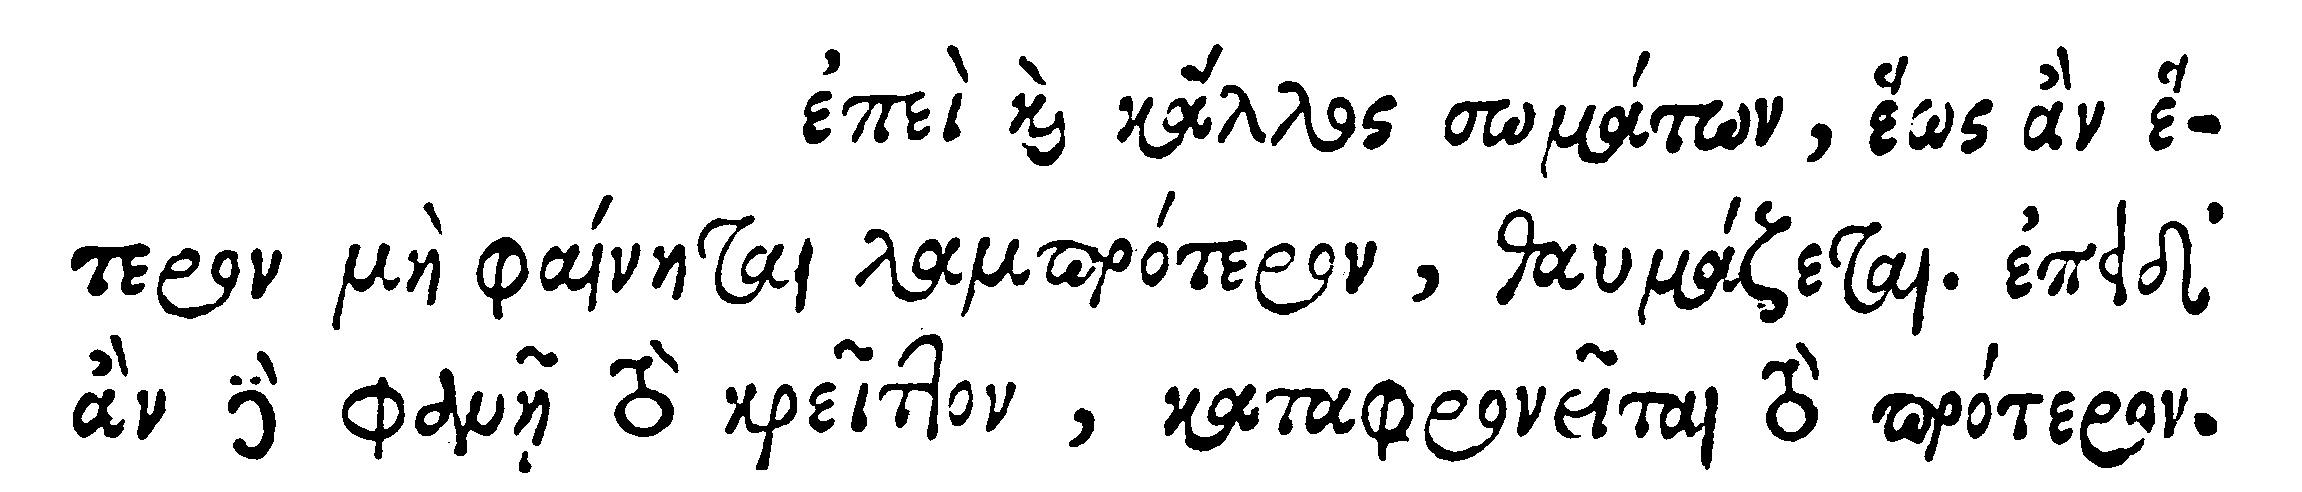 ἐπεὶ καὶ κάλλος σωμάτων, ἕως ἂν ἕ-
τερον μὴ φαίνηται λαμπρότερον, θαυμάζεται. ἐπειδ’
ἂν δὲ φανῇ τὸ κρεῖττον, καταφρονεῖται τὸ πρότερον.